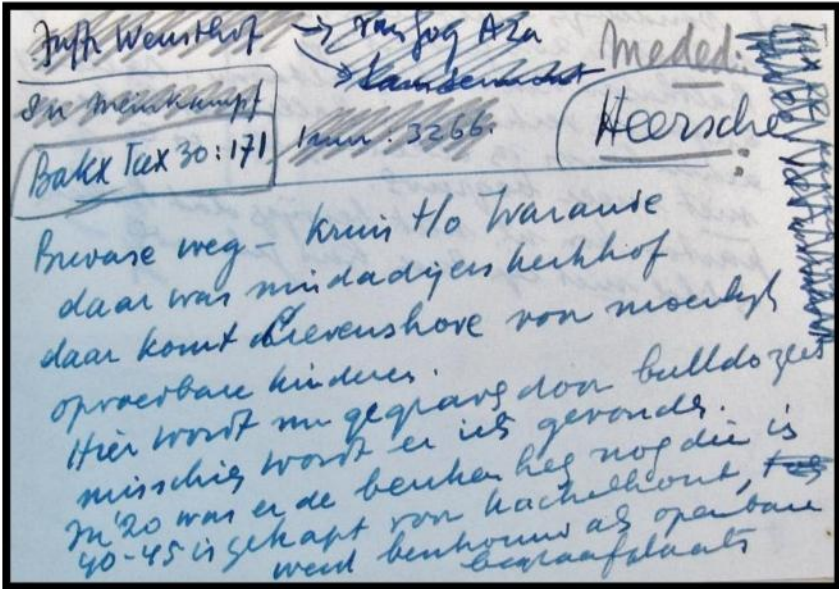 Juffr Wensthof → van Gog A2a
Meded:
Heersche
Bakx Tax 30:171
Inv. : 3266.
Bredase weg - Kruis t/o Warande
daar was misdadigers kerkhof
daar komt Lievenshove voor moeilijk
opvoedbare kinderen.
Hier wordt nu gegraven door bulldozers
misschien wordt er iets gevonden.
In '20 was er de beuken heg nog die is
40-45 is gekapt voor kachelhout,
werd beschouwd als openbare
begraafplaats